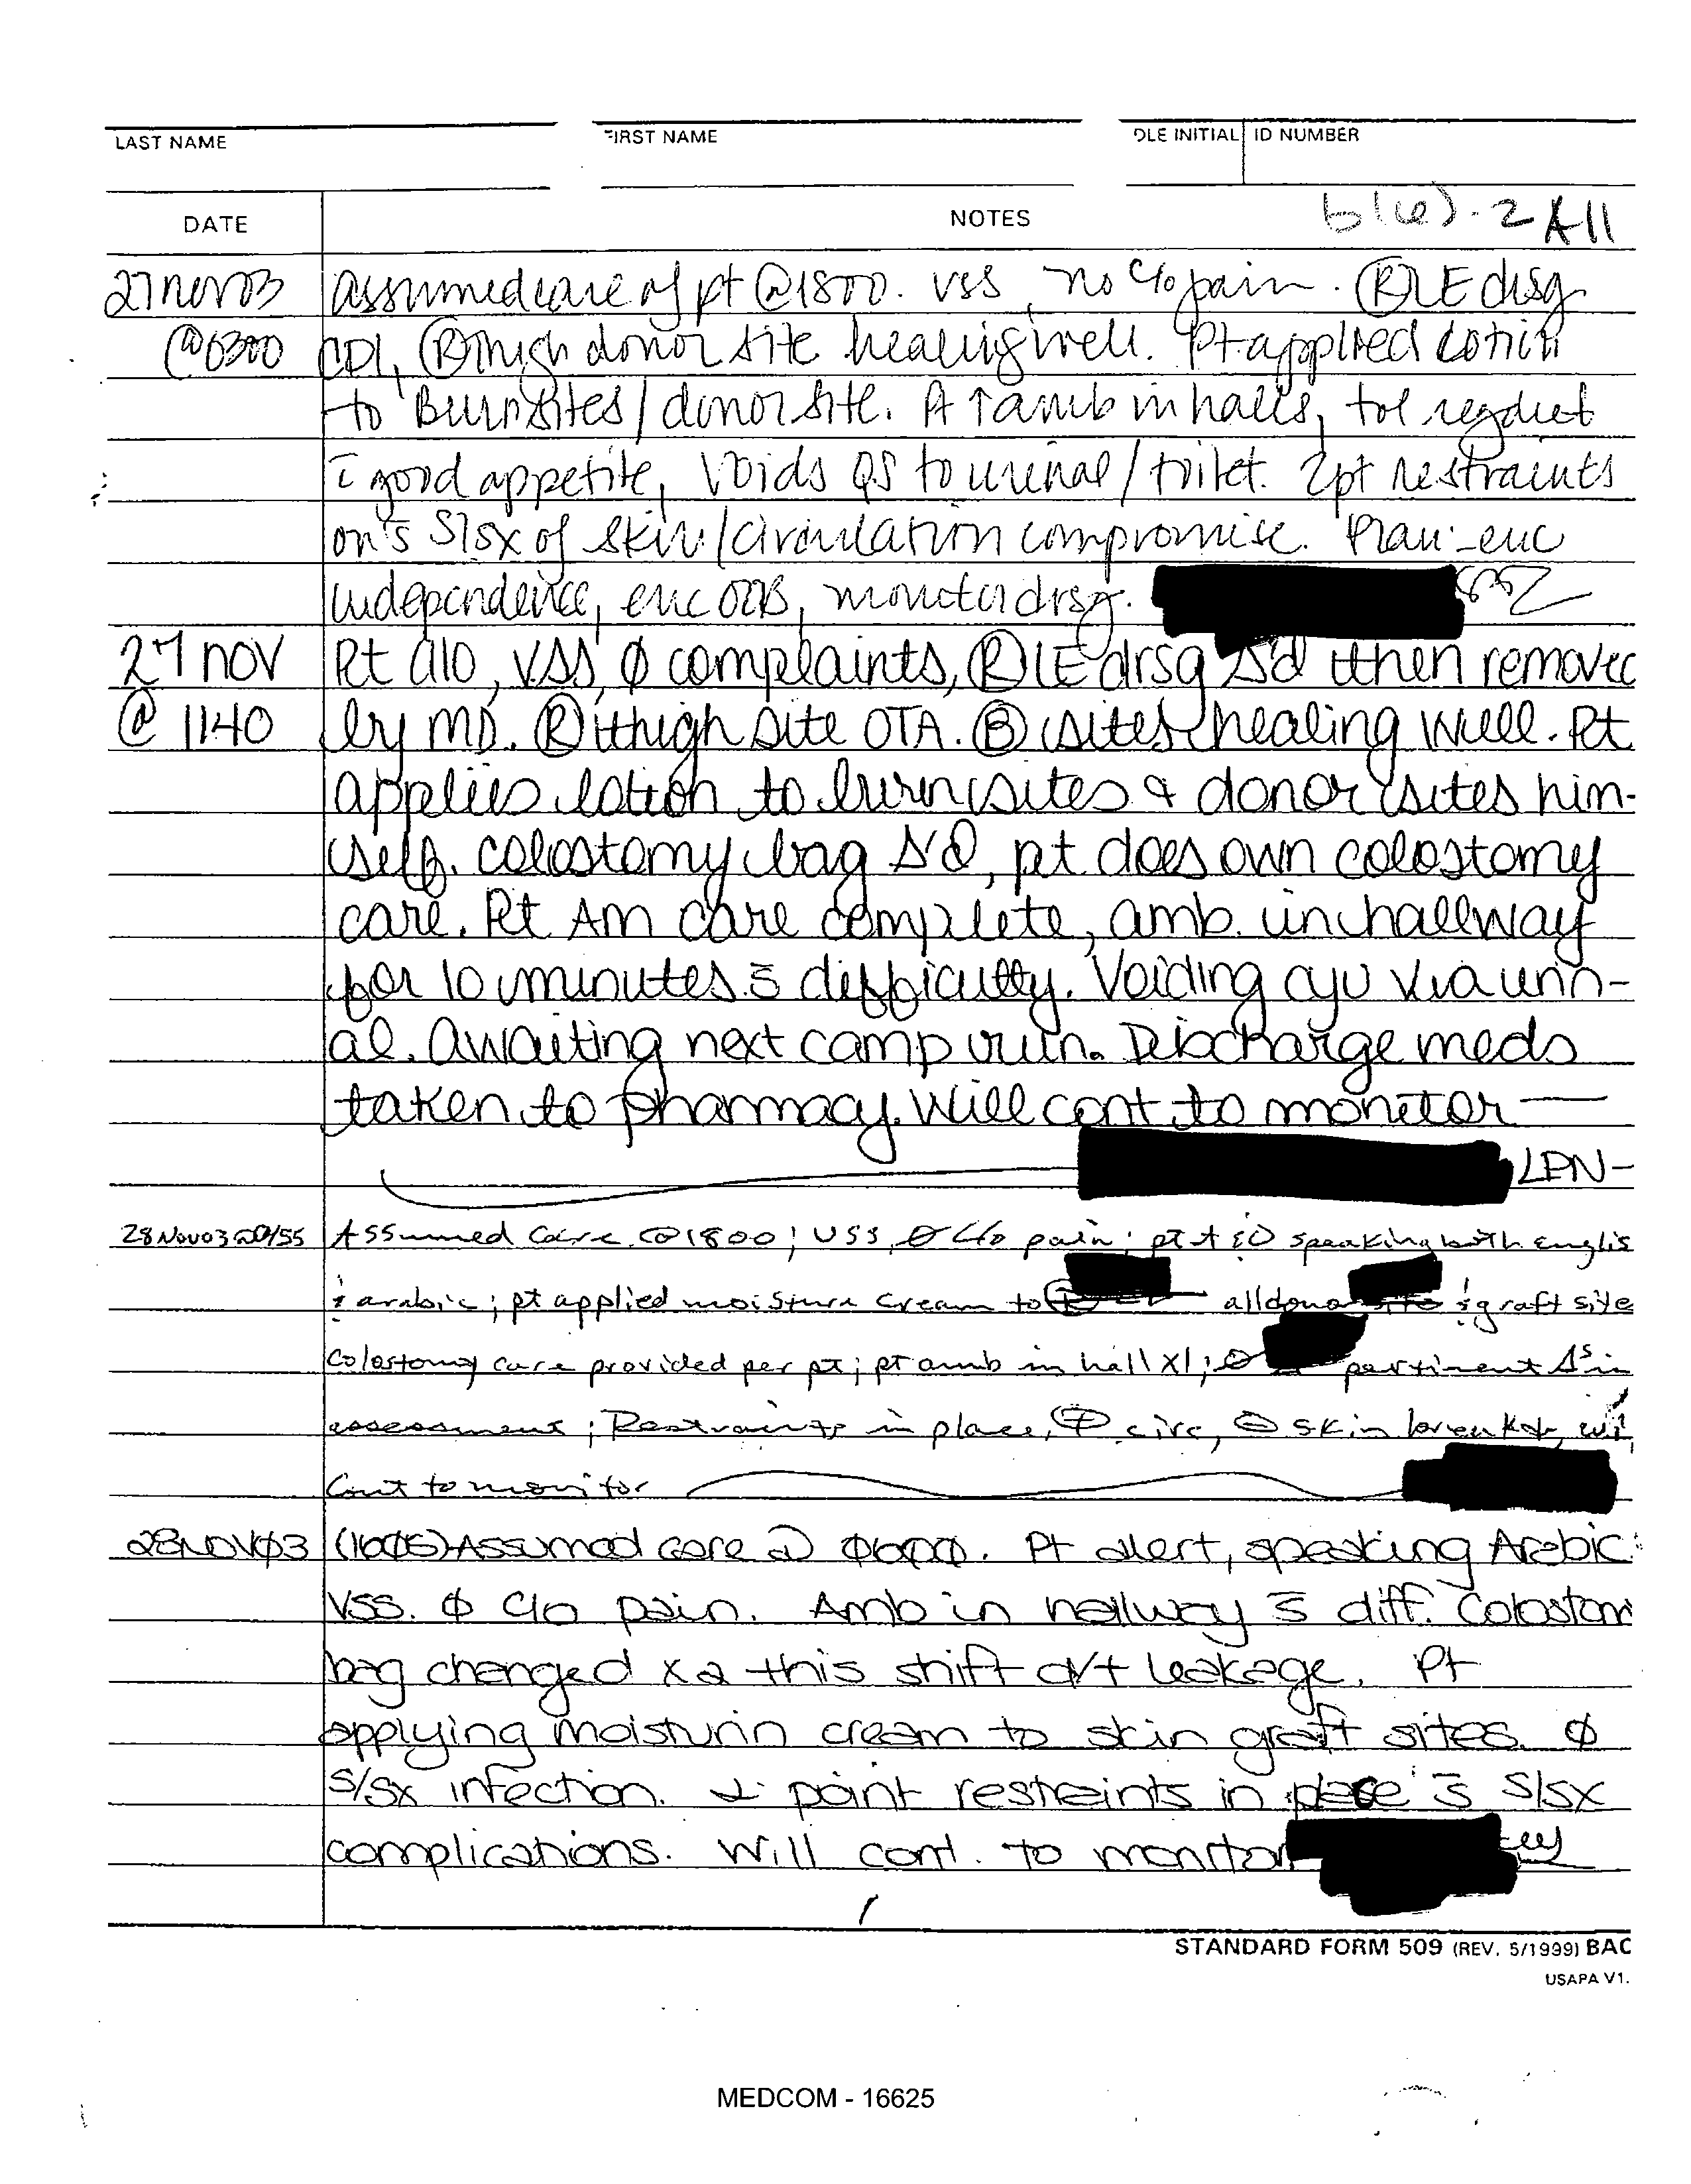 LAST NAME FIRST NAME DLE INITIAL ID NUMBER
DATE NOTES b(6)-2 All
27 nov 03 assumed care of pt @ 1800. VSS, no c/o pain. Ⓡ LE drsg
@0300 CDI, Ⓡ thigh donor site healing well. Pt applied lotion
to Burn sites/donor site. A↑amb in halls, tol reg diet
c̄ good appetite, Voids QS to urinal/toilet. 2pt restraints
on s̄ S/sx of skin/circulation compromise. Plan: enc
independence, enc OOB, monitor drsg.
27 nov Pt a/o, VSS, ∅ complaints, Ⓡ LE drsg Δ'd then removed
@ 1140 by MD. Ⓡ thigh site OTA. Ⓑ sites healing well. Pt
applies lotion to burn sites & donor sites him-
self. colostomy bag Δ'd, pt does own colostomy
care. Pt AM care complete, amb. in hallway
for 10 minutes s̄ difficulty. Voiding cyu via urin-
al. Awaiting next camp run. Discharge meds
taken to pharmacy. Will cont to monitor —
LPN-
28Nov03 @0155 Assumed Care @1800; VSS, ∅ c/o pain; pt speaking both englis
& arabic; pt applied moisture cream to all dono & graft site
Colostomy care provided per pt; pt amb in hall x1; ∅ pertinent Δs in
assessment; Restraints in place, ⊕ circ, ⊖ skin breakd,
Cont to monitor
28NOV03 (1605) Assumed care @ 0600. Pt alert, speaking Arabic
VSS. ∅ c/o pain. Amb in hallway s̄ diff. Colostom
bag changed x2 this shift d/t leakage. Pt
applying moisturin cream to skin graft sites. ∅
S/Sx infection. 2 point restraints in place s̄ S/Sx
complications. Will cont. to monitor
STANDARD FORM 509 (REV. 5/1999) BAC
USAPA V1.
MEDCOM - 16625